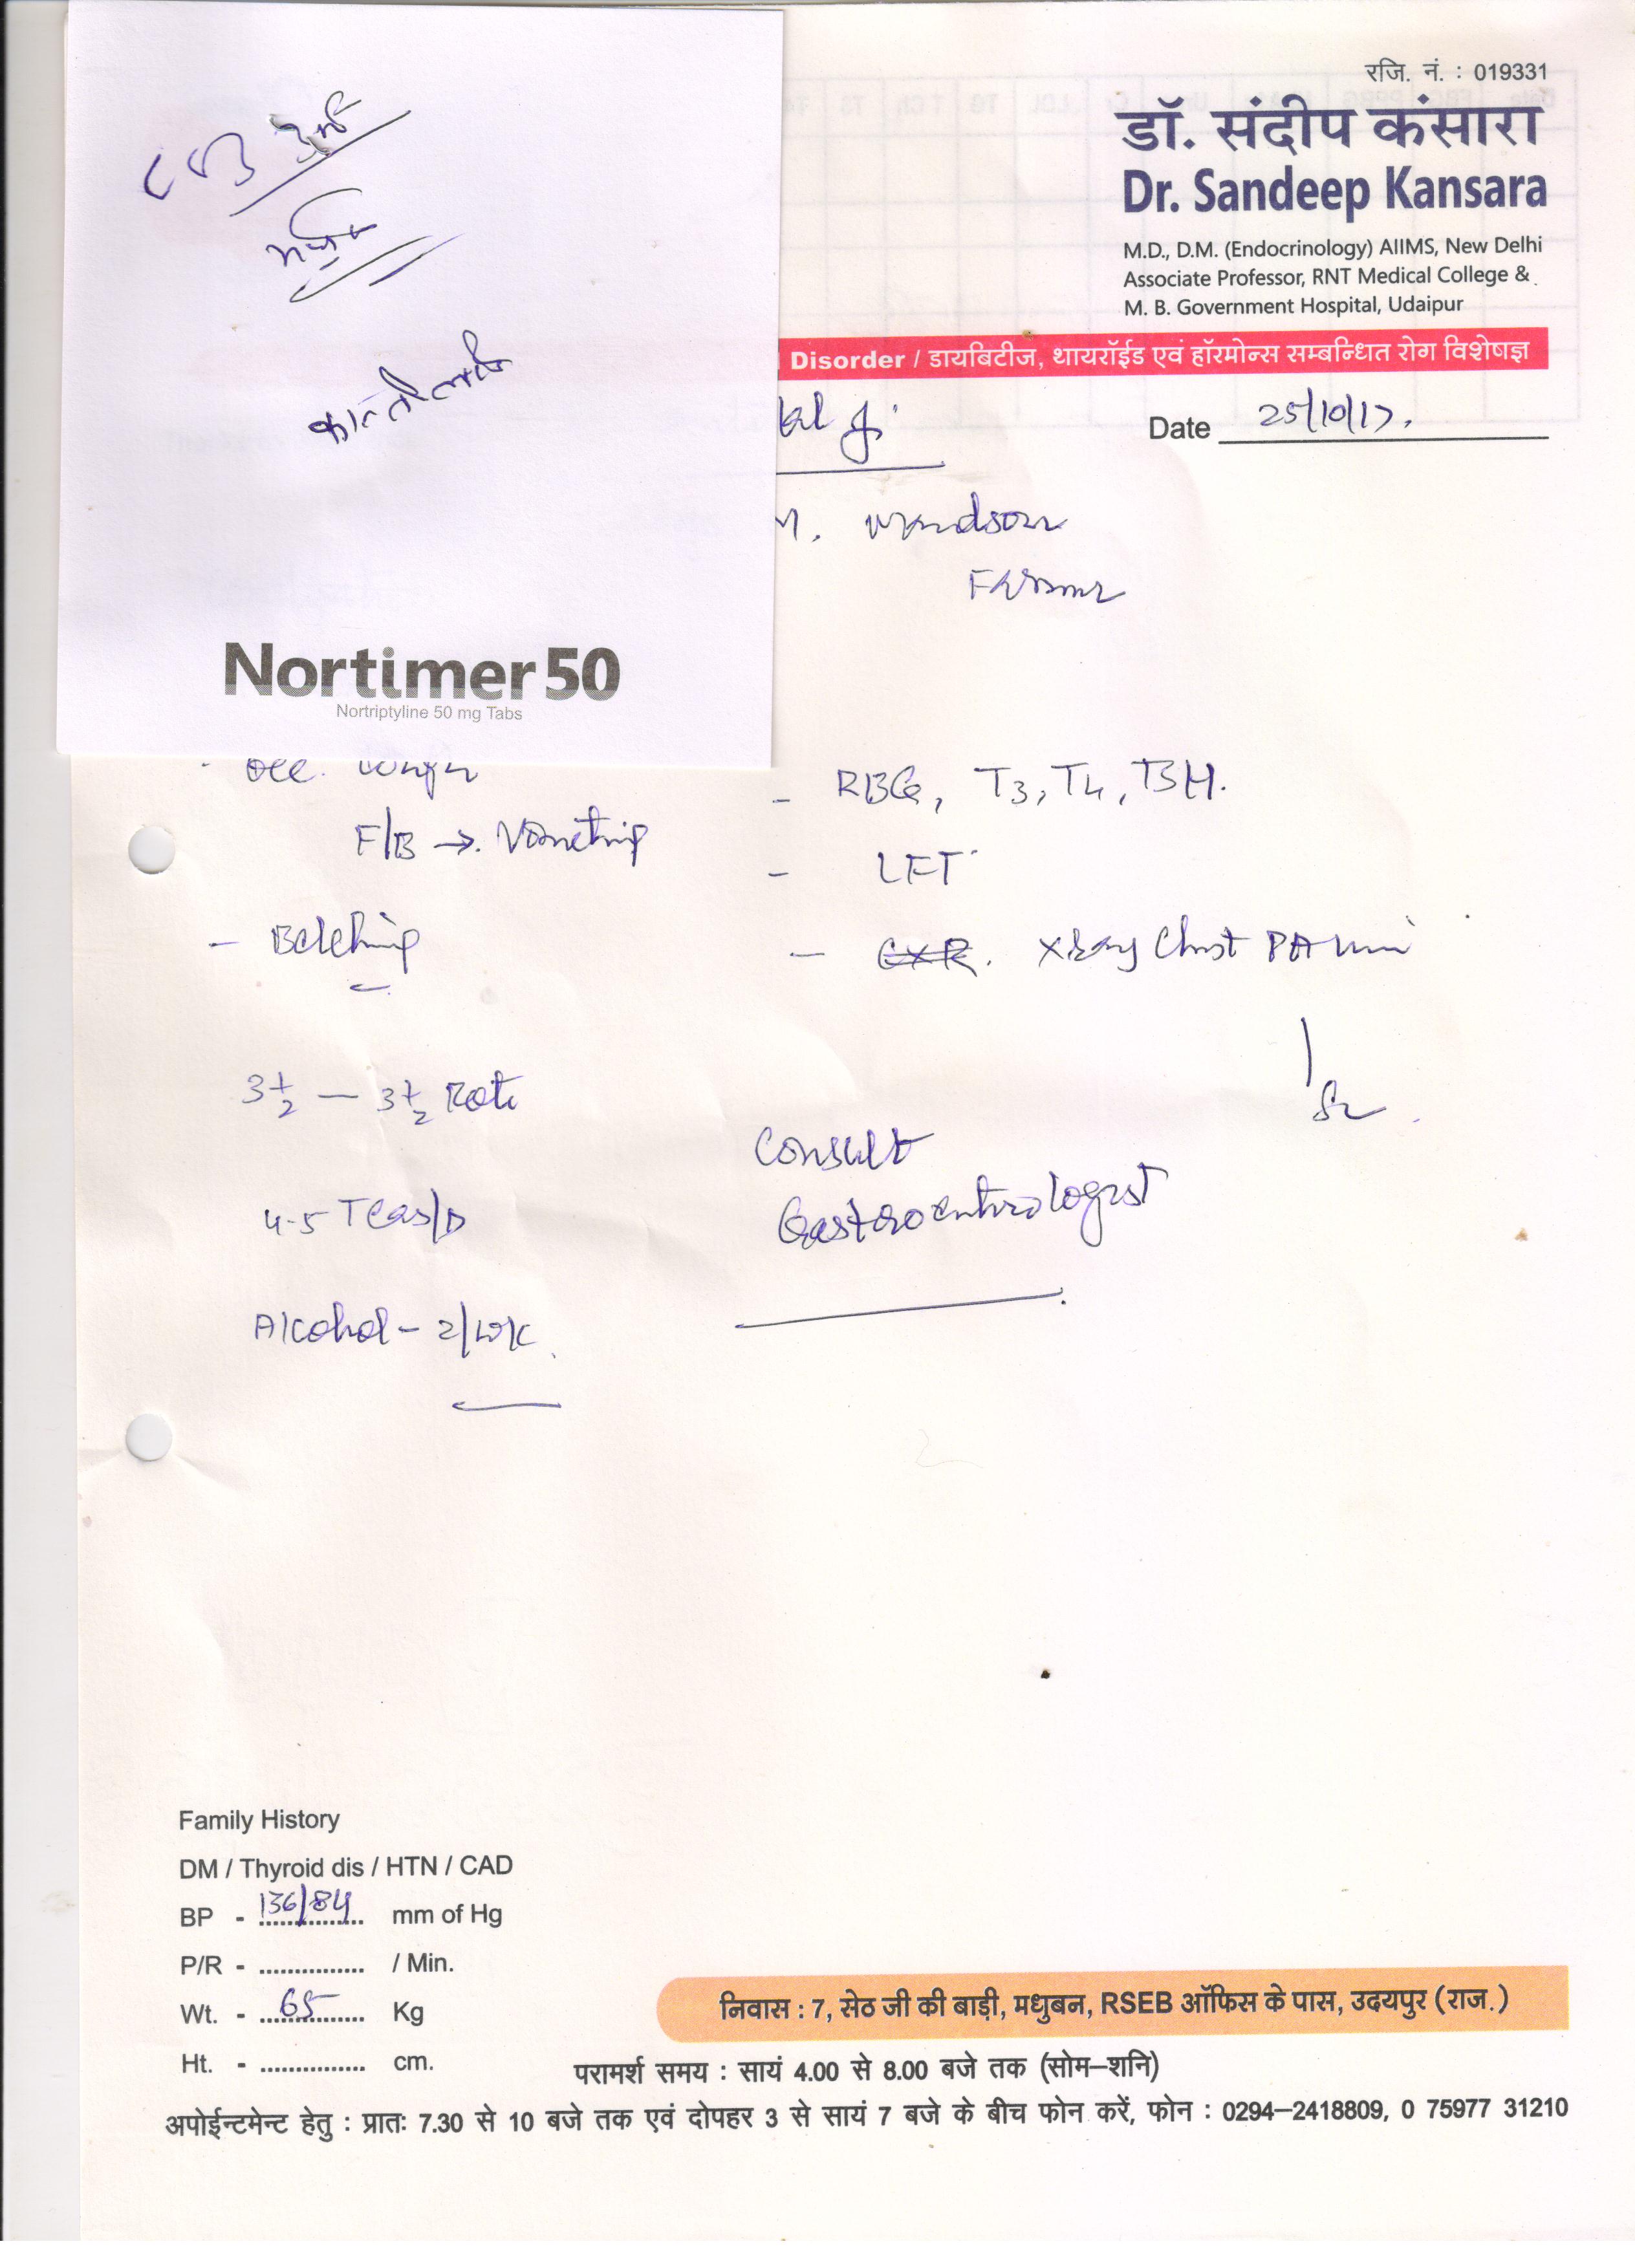 रजि. नं. : 019331
डॉ. संदीप कंसारा
Dr. Sandeep Kansara
M.D., D.M. (Endocrinology) AIIMS, New Delhi
Associate Professor, RNT Medical College &
M. B. Government Hospital, Udaipur
Disorder / डायबिटीज, थायरॉईड एवं हॉरमोन्स सम्बन्धित रोग विशेषज्ञ
Date 25/10/17.
Nortimer 50
Nortriptyline 50 mg Tabs
- RBG, T3, T4, TSH.
F/B → Vometing
- LFT
- Belching
- CXR. Xray Chest PA
3½ - 3½ Roti
Consult
Gastroenterologist
4-5 Teas/D
Alcohol - 2/wk.
Family History
DM / Thyroid dis / HTN / CAD
BP - 136/84 mm of Hg
P/R - ............... / Min.
Wt. - 65 Kg
Ht. - ............... cm.
निवास : 7, सेठ जी की बाड़ी, मधुबन, RSEB ऑफिस के पास, उदयपुर (राज.)
परामर्श समय : सायं 4.00 से 8.00 बजे तक (सोम–शनि)
अपोईन्टमेन्ट हेतु : प्रातः 7.30 से 10 बजे तक एवं दोपहर 3 से सायं 7 बजे के बीच फोन करें, फोन : 0294–2418809, 0 75977 31210